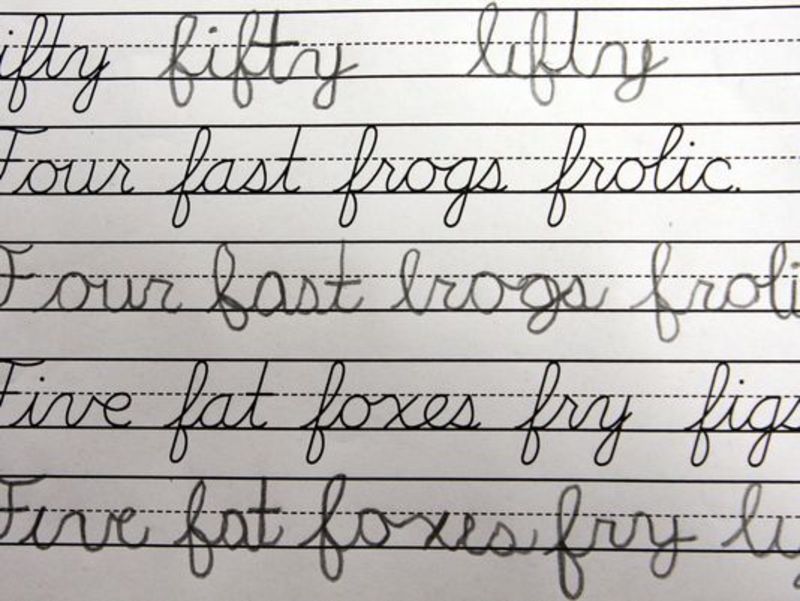 ifty fifty lefty
Four fast frogs frolic.
Four fast lrogs froli
Five fat foxes fry figs
Five fat foxes fry